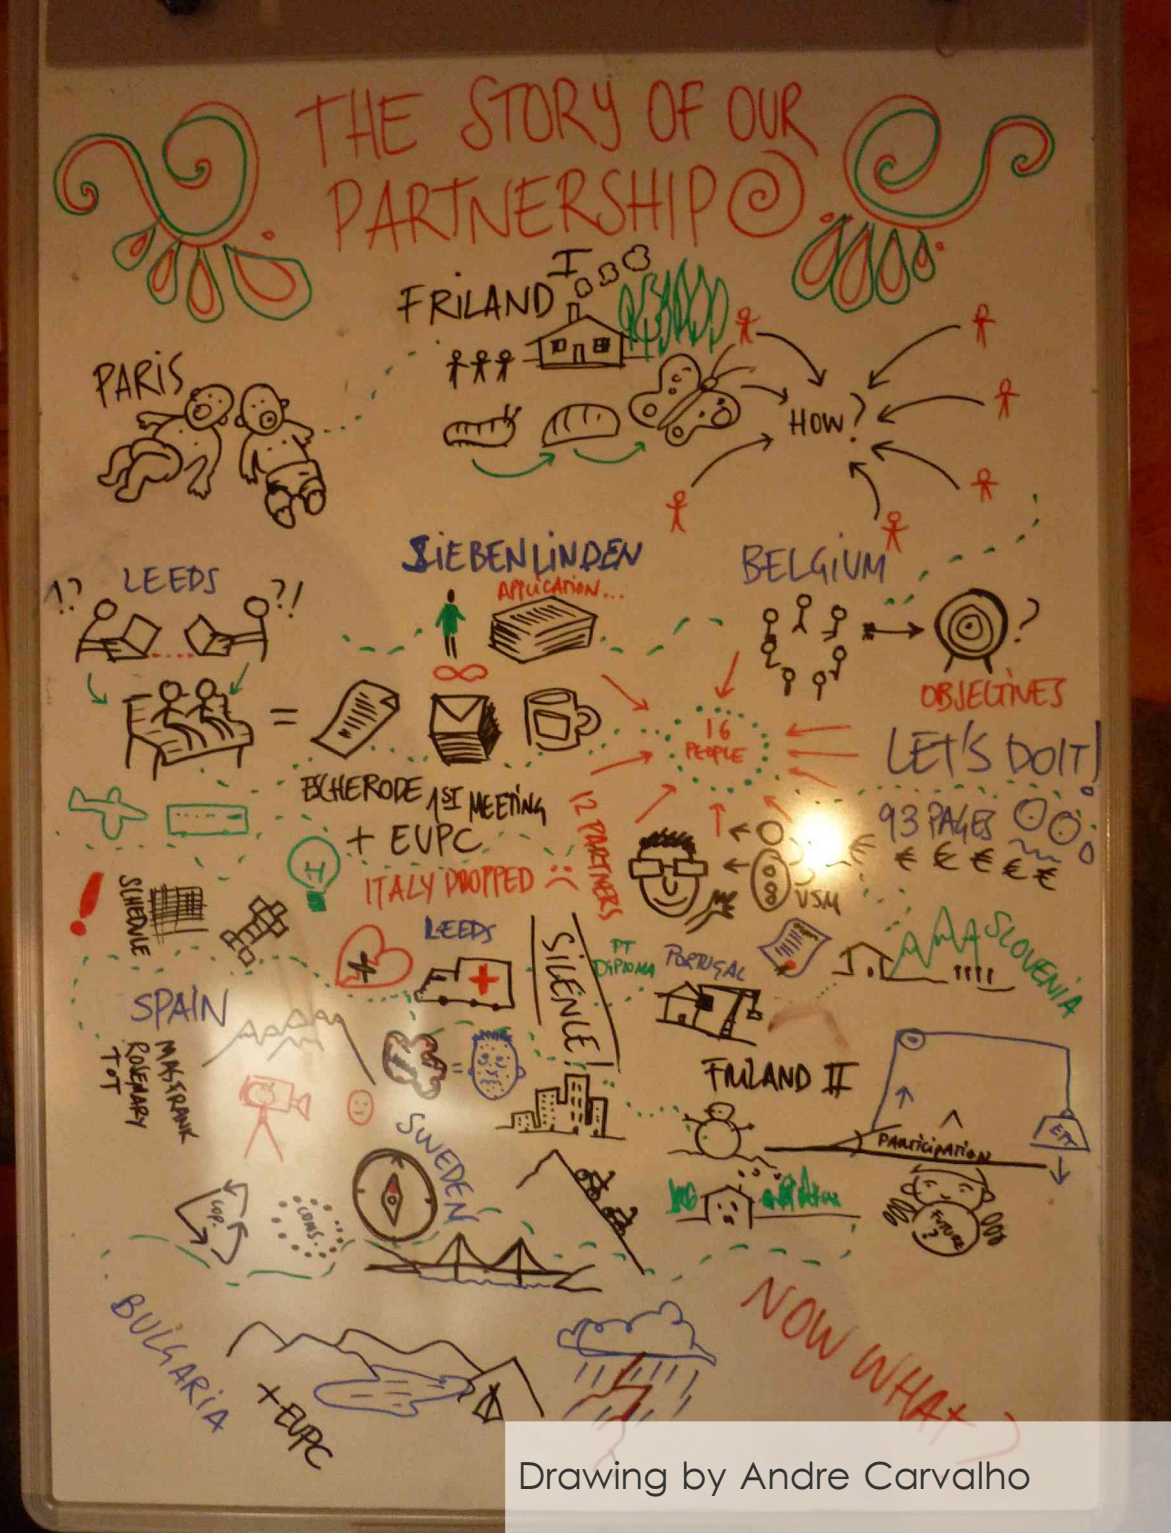 THE STORY OF OUR
PARTNERSHIP
FRILAND I
PARIS
HOW?
LEEDS
1?
?!
SIEBENLINDEN
APPLICATION...
BELGIUM
?
OBJECTIVES
=
16
PEOPLE
LET'S DO IT!
ESCHERODE 1ST MEETING
+ EUPC
12 PARTNERS
93 PAGES
€ € € € €
ITALY DROPPED :(
VSM
!
SCHEDULE
LEEDS
SILENCE!
PT
DIPLOMA
PORTUGAL
SLOVENIA
SPAIN
ROSEMARY
TOT
=
FRILAND II
PARTICIPATION
SWEDEN
COP.
COMS.
FUTURE
?
BULGARIA
+ EUPC
NOW WHAT?
Drawing by Andre Carvalho